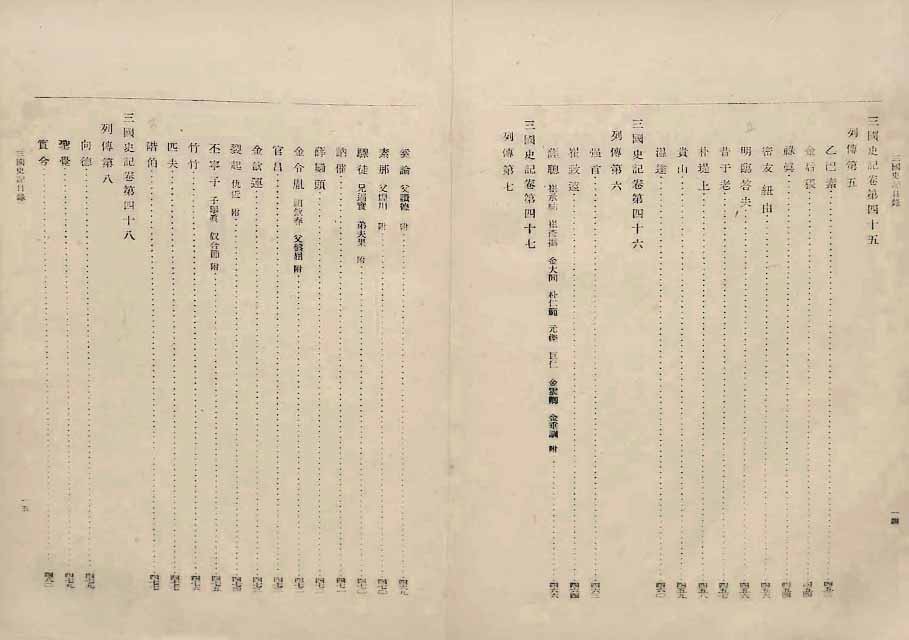 三國史記目錄
三國史記卷第四十五
列傳第五
乙巴素
金后稷
祿眞
密友 紐由
明臨荅夫
昔于老
朴堤上
貴山
溫達
三國史記卷第四十六
列傳第六
强首
崔致遠
薛聰 崔承祐 崔彥撝 金大問 朴仁範 元傑 巨仁 金雲卿 金垂訓 附
三國史記卷第四十七
列傳第七
一四
奚論 父讚德 附
素那 父沈川 附
驟徒 兄 弟夫果 附
訥催
薛罽頭
金令胤 祖欽春 父盤屈 附
官昌
金歆運
裂起 仇近 附
丕寧子 子擧眞 奴合節 附
竹竹
匹夫
階伯
三國史記卷第四十八
列傳第八
向德
聖覺
實兮
三國史記目錄
一五